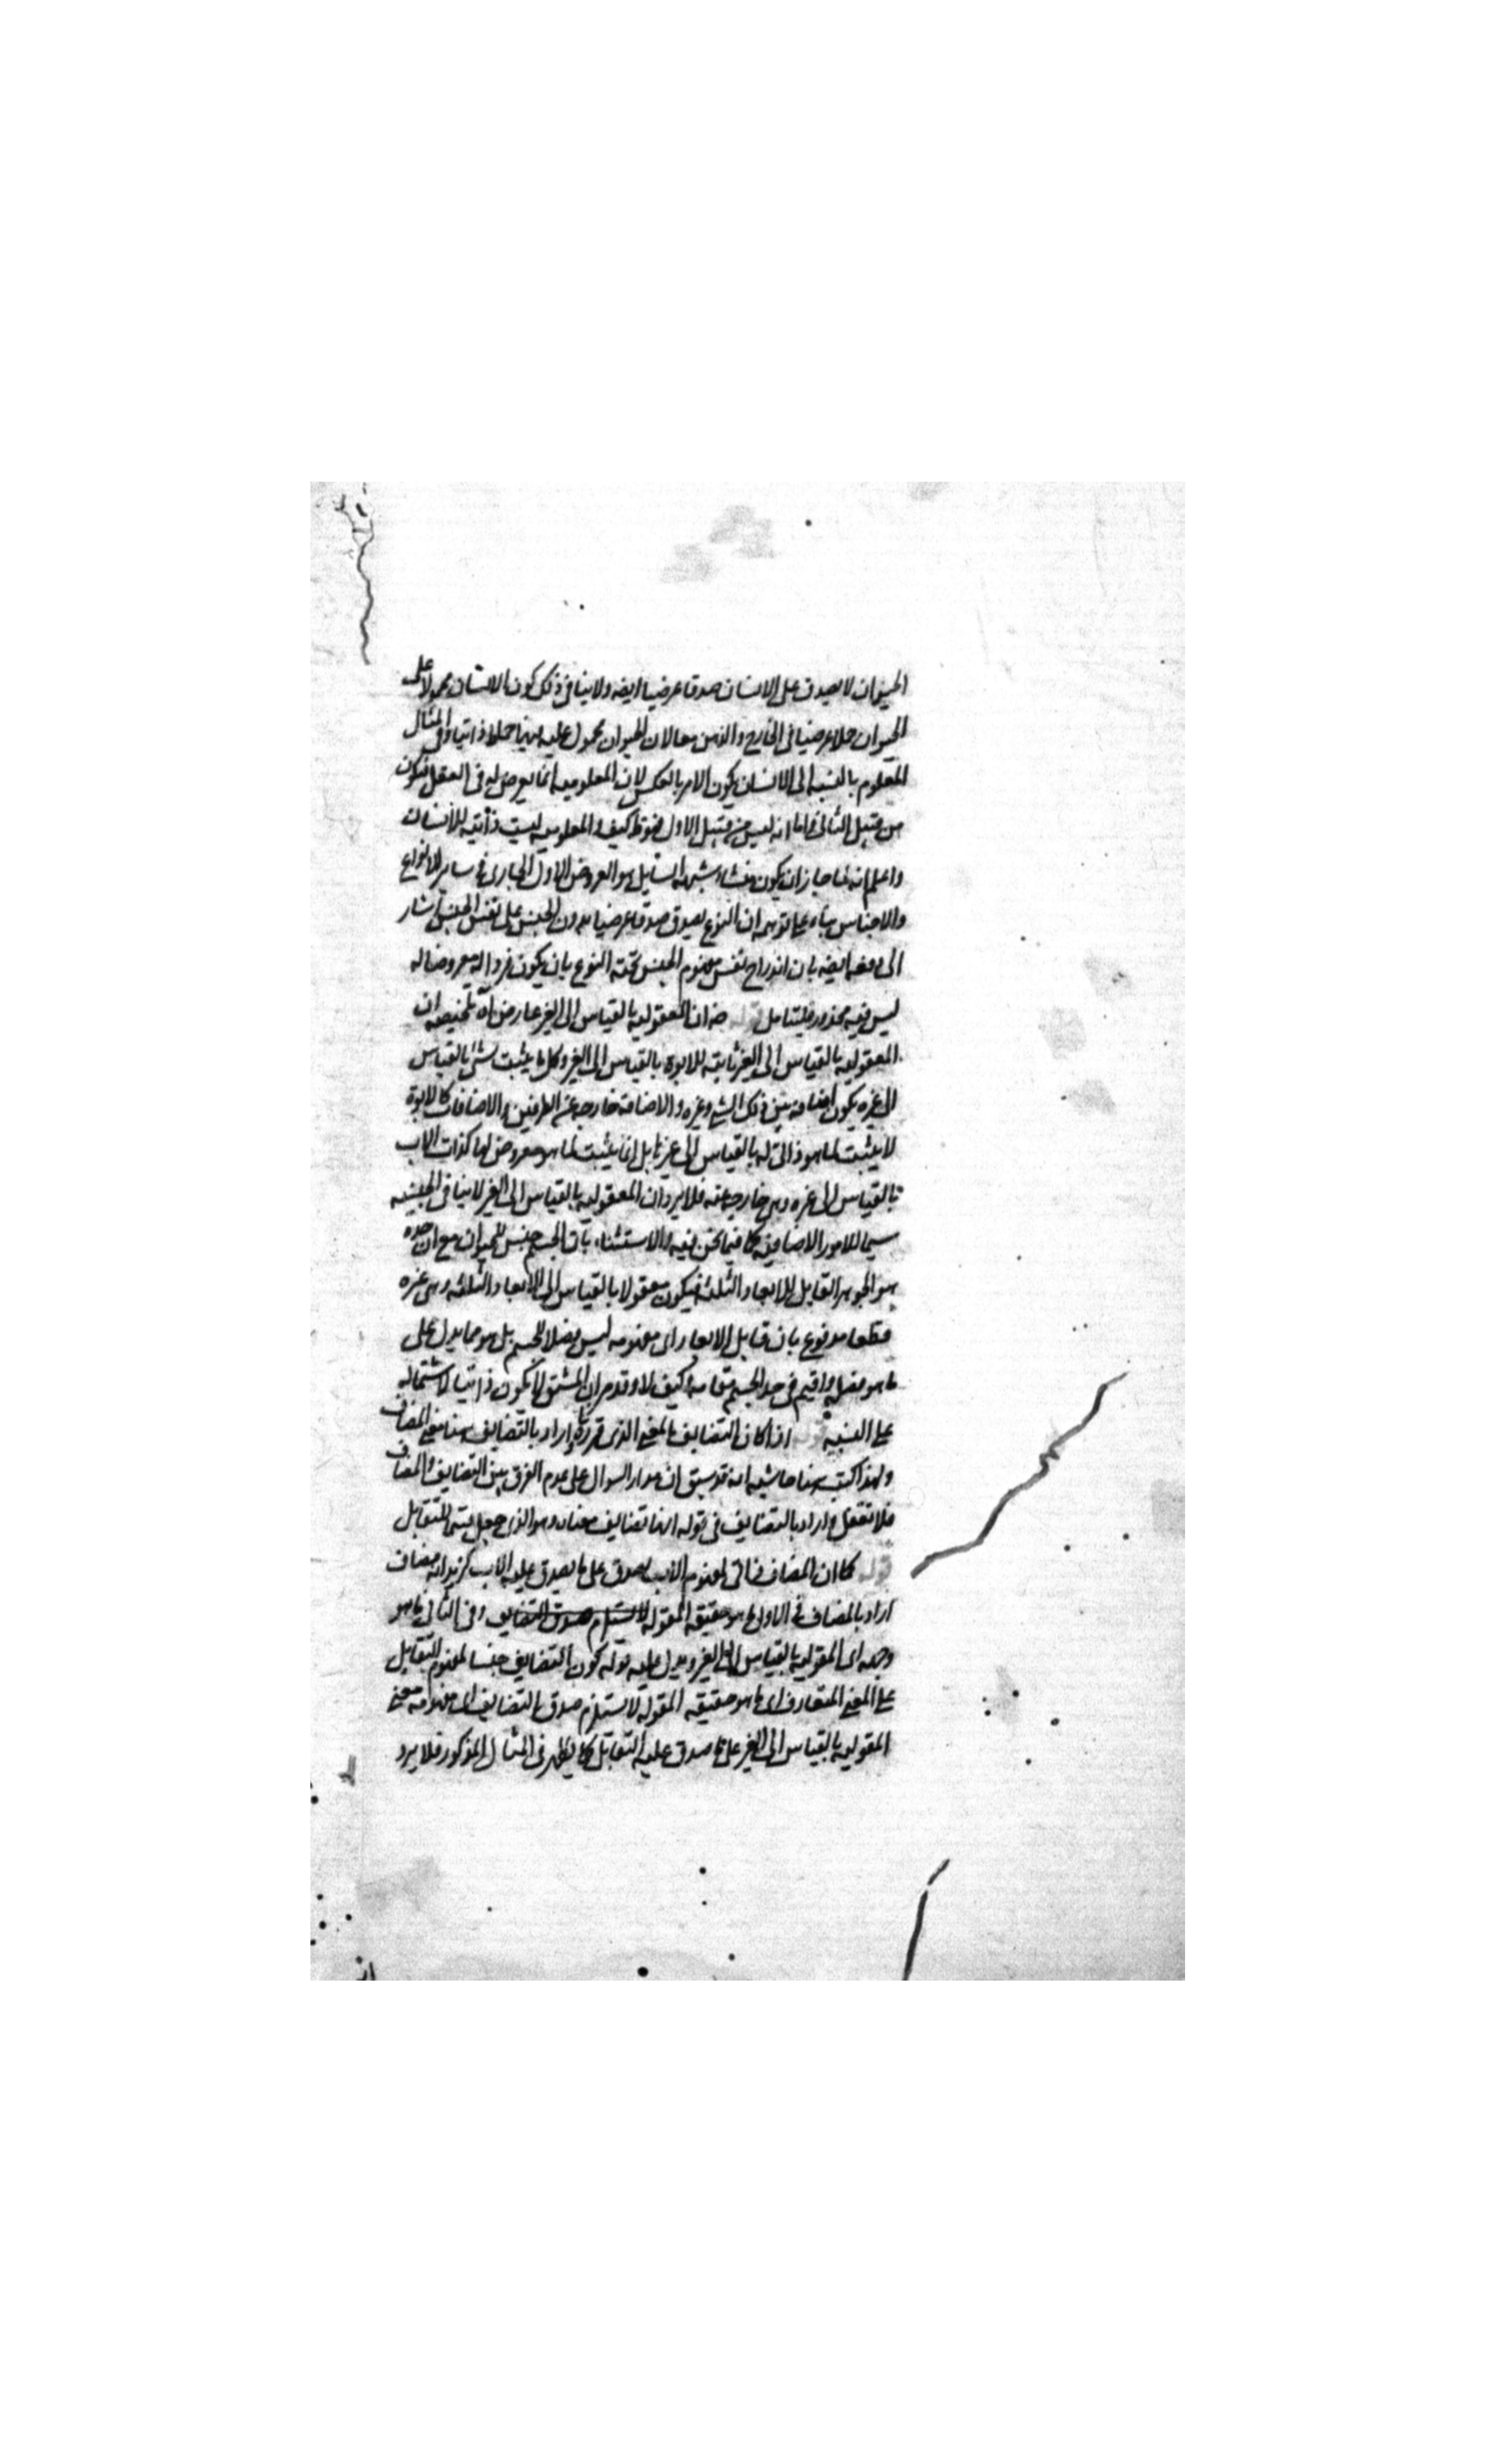 الحيوان لا يصدق على الانسان صدقا عرضيا ايضه ولا ينافى ذلك كون الانسان محمولا على
الحيوان حملا عرضيا فى الخارج والذهن معا لان الحيوان محمول عليه فيهما حملا ذاتيا وفى المثال
المعلوم بالنسبه الى الانسان يكون الامر بالعكس لان المعلوميه انما يعرض له فى العقل فيكون
من قبيل الثانى واما انه ليس من قبيل الاول فهو ظ كيف والمعلوميه ليست ذاتيه للانسان
واعلم انه لما جاز ان يكون منشاء شبهه السايل هو العروض الاول الجارى فى ساير الانواع
والاجناس بناء على توهم ان النوع يصدق صدقا عرضيا بدون الجنس على نفس الجنس اشار
الى دفعه ايضه بان اندراج نفس مفهوم الجنس تحته النوع بان يكون فردا له معروضا له
ليس فيه محذور فليتامل قوله ضه ان المعقوليه بالقياس الى الغير عارض اه تلخيصه ان
المعقوليه بالقياس الى الغير ثابته للابوة بالقياس الى الغير وكل ما يثبت لشئ بالقياس
الى غيره يكون اضافه بين ذلك الشئ وغيره والاضافه خارجه عن الطرفين والاضافات كالابوة
لا يثبت لما هو ذاتى له بالقياس الى غيره بل انما يثبت لما هو معروض لها كذات الاب
بالقياس الى غيره وهى خارجه عنه فلا يرد ان المعقوليه بالقياس الى الغير لا ينافى الجنسيه
سيما للامور الاضافيه كما فيما نحن فيه والاستثناء بان الجسم جنس للحيوان مع ان حده
هو الجوهر القابل للابعاد الثلثه فيكون معقولا بالقياس الى الابعاد الثلثه وهى غيره
قطعا مدفوع بان قابل الابعاد اى مفهومه ليس فصلا للجسم بل هو مما يدل على
ما هو فصل واقيم فى حد الجسم مقامه وكيف لا وقد مر ان المشتق لا يكون ذاتيا لاشتماله
على النسبه قوله اذا كان التضايف بالمعنى الذى قررته اراد بالتضايف هنا معنى المضاف
ولهذا كتب هنا حاشيه انه قد سبق ان مدار السوال على عدم الفرق بين التضايف والمضاف
فلا تغفل واراد بالتضايف فى قوله انها تضايف معناه وهو الذى جعل قسم المتقابل
قوله كما ان المضاف ذاتى لمفهوم الاب يصدق على ما يصدق عليه الاب كزيد انه مضاف
اراد بالمضاف فى الاول ما هو حقيقه المقوله لا يستلزم صدق التضايف وفى الثانى ما هو
وجهه اى المقوليه بالقياس الى الغير ويدل عليه قوله كون التضايف جنسا لمفهوم التقابل
على المعنى المتعارف اى ما هو حقيقه المقوله لا يستلزم صدق التضايف اى مفهومه معنى
المقوليه بالقياس الى الغير على ما صدق عليه التقابل كما يظهر فى المثال المذكور فلا يرد